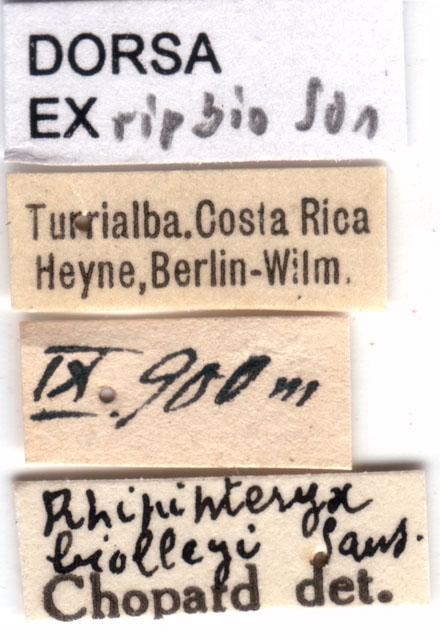 DORSA
EX ripbio S01
Turrialba.Costa Rica
Heyne,Berlin-Wilm.
IX. 900 m
Rhipipteryx
biolleyi Saus.
Chopard det.